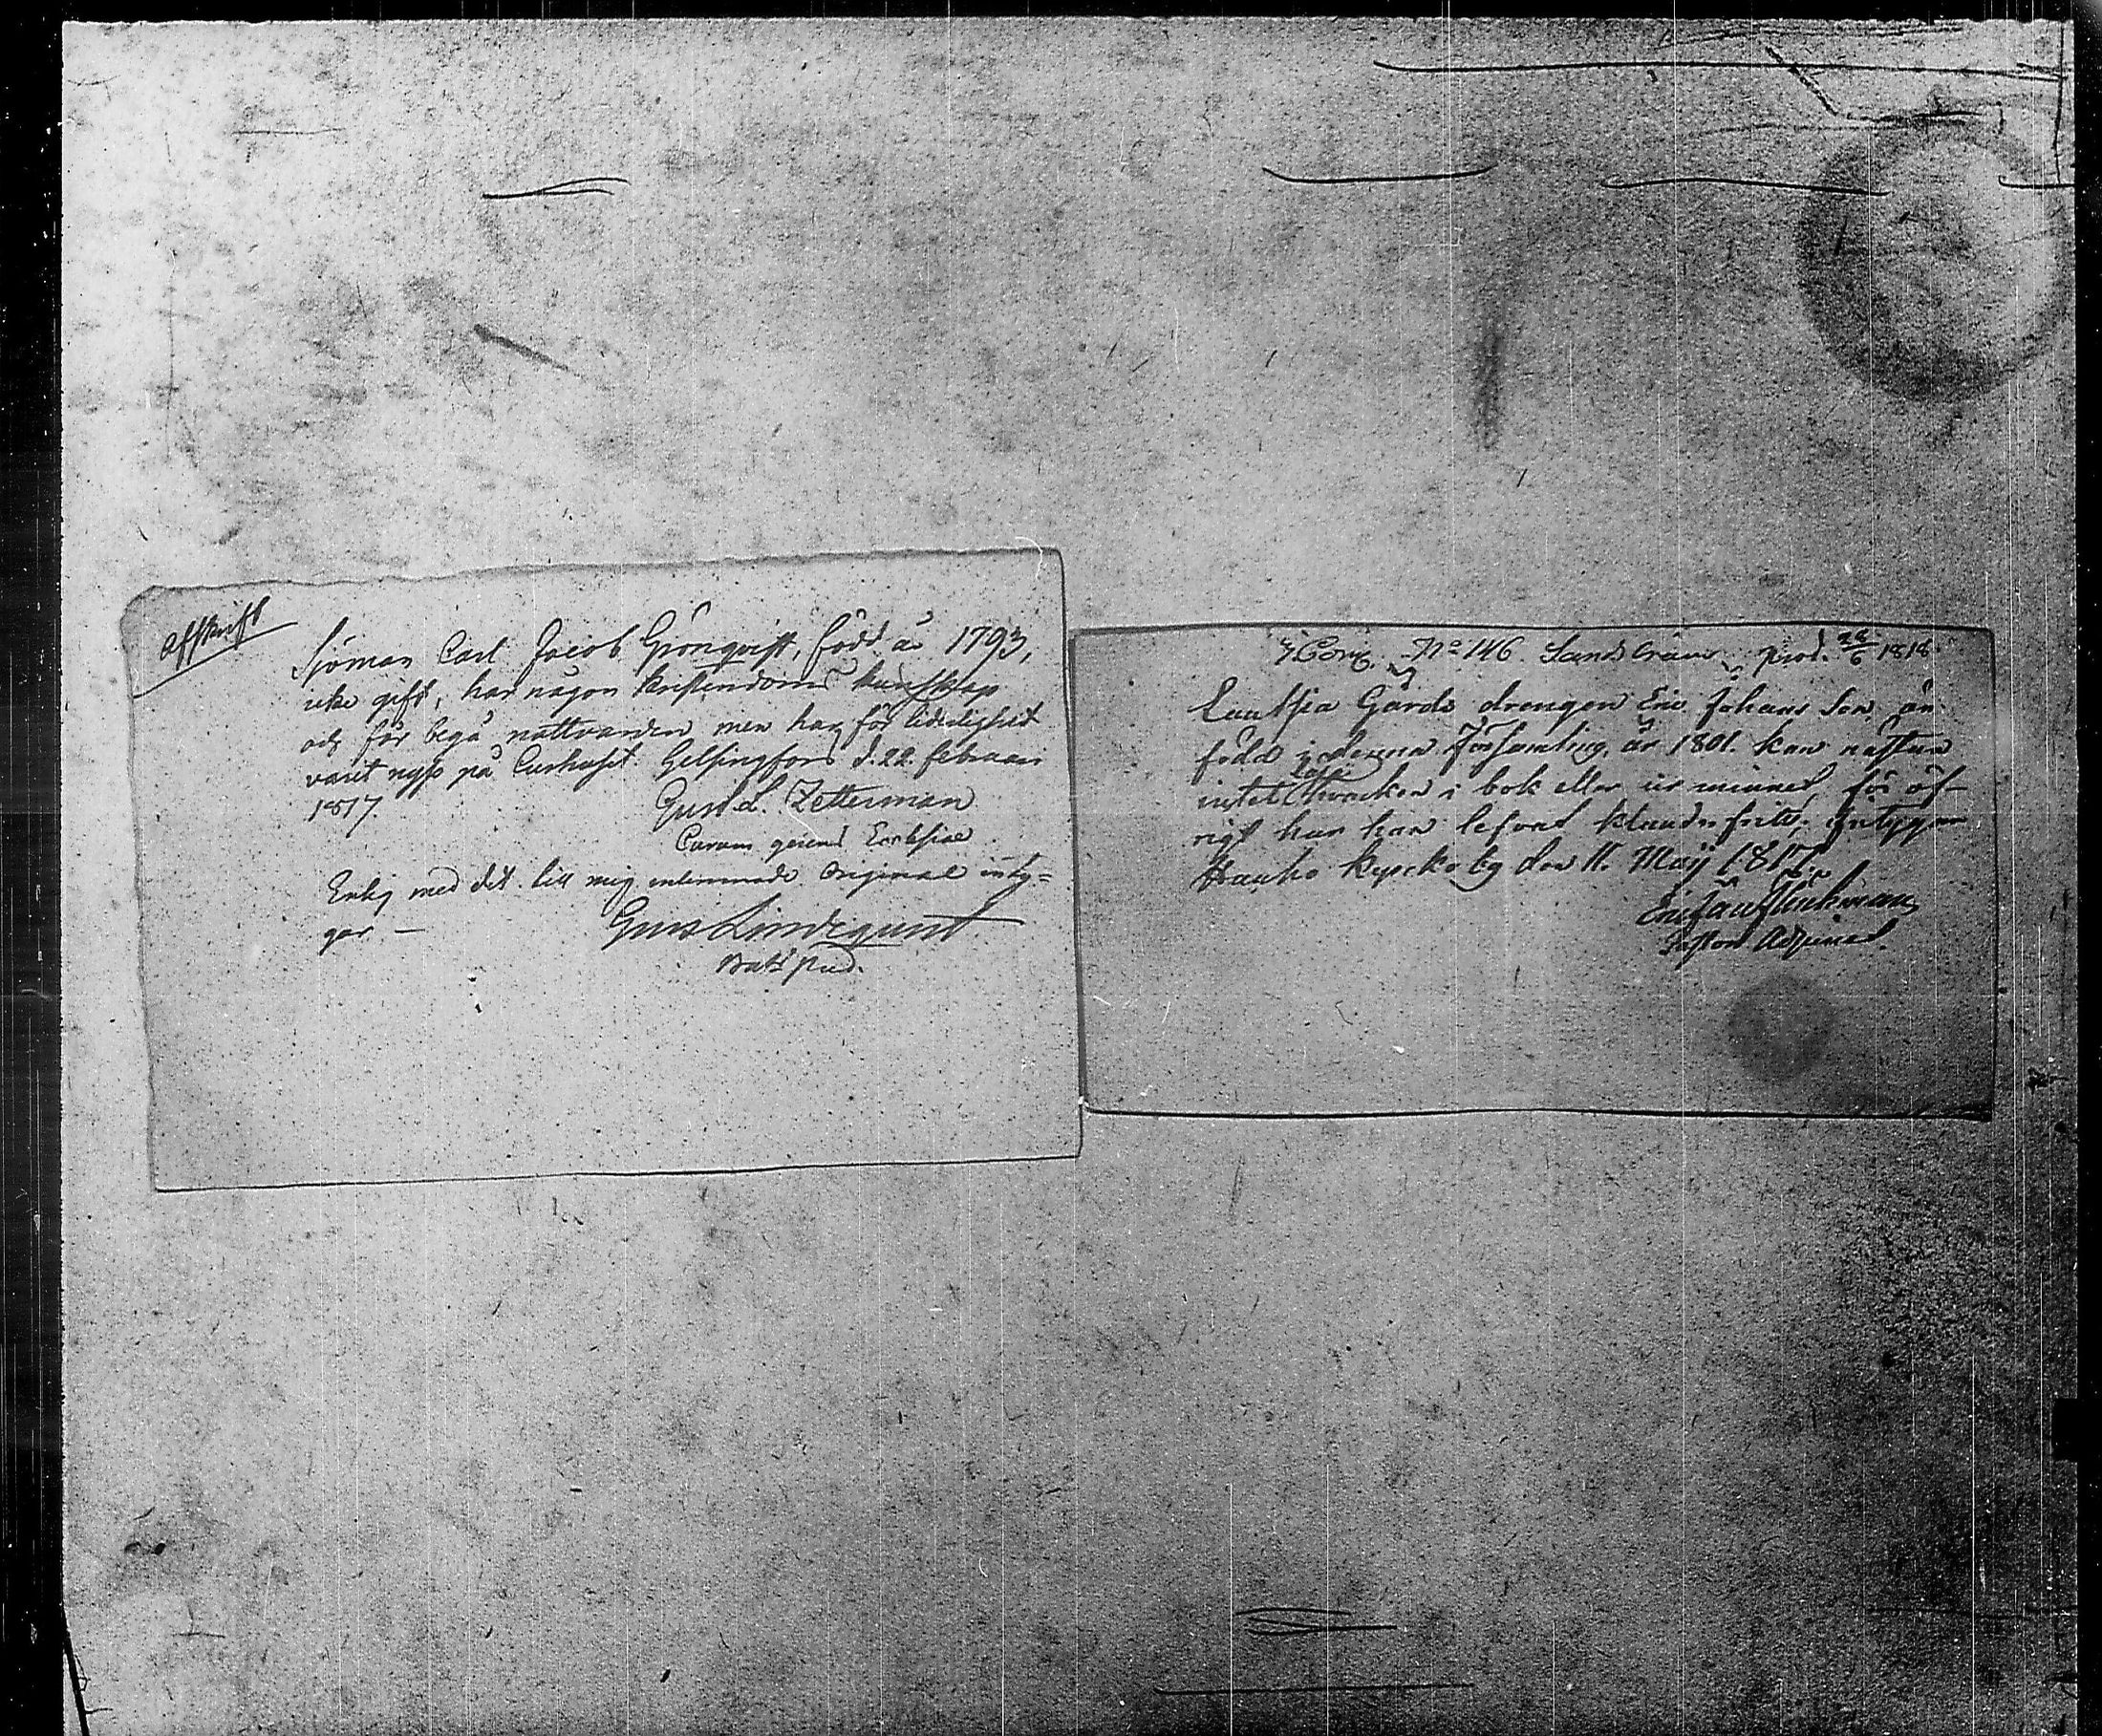 Afskrift
Sjöman Carl Jacob Grönqvist, född år 1793,
icke gift, har någon kristendoms kunskap
och får begå nattvarden men har för liderlighet
varit nyss på Curhuset. Helsingfors d. 22 februari
1817.
Gust. L. Zetterman
Curam gerens Ecclesiae
Enlig med det till mig inlemnade Original inty=
gar —
Gust Lindequist
Bats Pred.
No 146. Sands Cräm prod. 28/6 1818.
Gårds drengen Eric Johans Son, än
född i denna Församling, år 1801. kan nästan
intet läsa hvarcken i bok eller ur minnet, för öf-
rigt har han lefvat klanderfritt; Intygar
Hauho kyrckoby den 11. Maij 1817.
Pastors Adjunct.